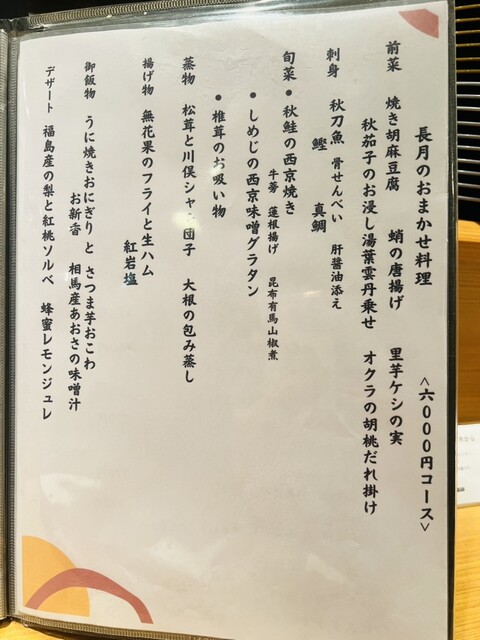 長月のおまかせ料理 <六000円コース>
前菜 焼き胡麻豆腐 蛸の唐揚げ 里芋ケシの実
秋茄子のお浸し湯葉雲丹乗せ オクラの胡桃だれ掛け
刺身 秋刀魚 骨せんべい 肝醤油添え
鰹 真鯛
旬菜 ・秋鮭の西京焼き
牛蒡 蓮根揚げ 昆布有馬山椒煮
・しめじの西京味噌グラタン
・椎茸のお吸い物
蒸物 松茸と川俣シャモ団子 大根の包み蒸し
揚げ物 無花果のフライと生ハム
紅岩塩
御飯物 うに焼きおにぎり と さつま芋おこわ
お新香 相馬産あおさの味噌汁
デザート 福島産の梨と紅桃ソルベ 蜂蜜レモンジュレ